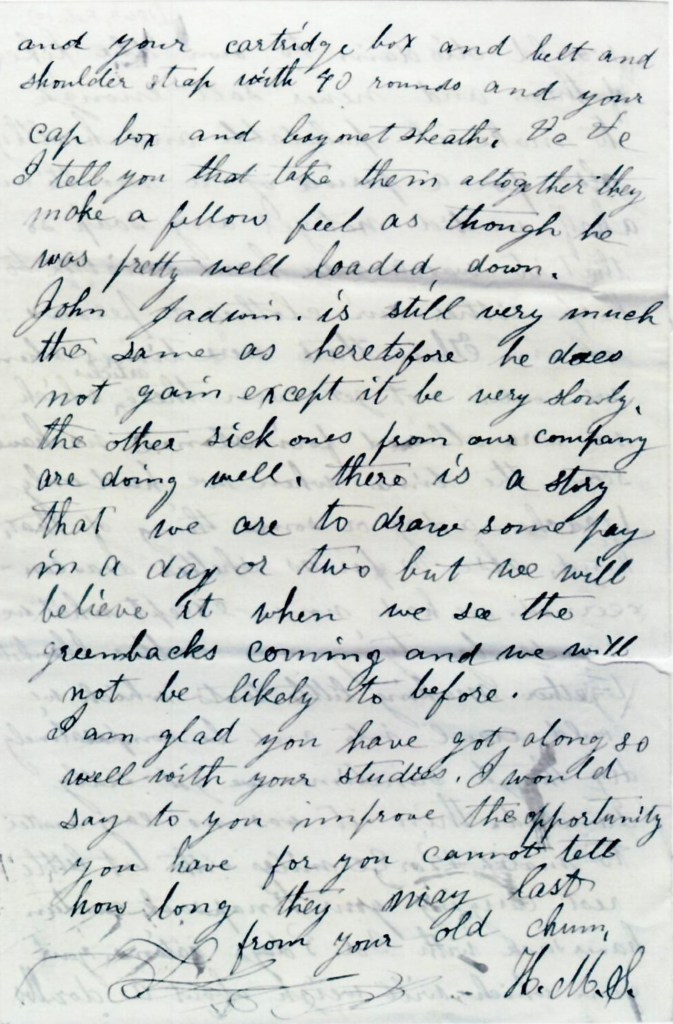 and your cartridge box and belt and
shoulder strap with 40 rounds and your
cap box and bayonet sheath, &c &c
I tell you that take them altogether they
make a fellow feel as though he
was pretty well loaded down.
John Jadwin. is still very much
the same as heretofore he does
not gain except it be very slowly.
the other sick ones from our company
are doing well. there is a story
that we are to draw some pay
in a day or two but we will
believe it when we see the
greenbacks coming and we will
not be likely to before.
I am glad you have got along so
well with your studies. I would
say to you improve the opportunity
you have for you cannot tell
how long they may last
from your old chum,
H. M. S.